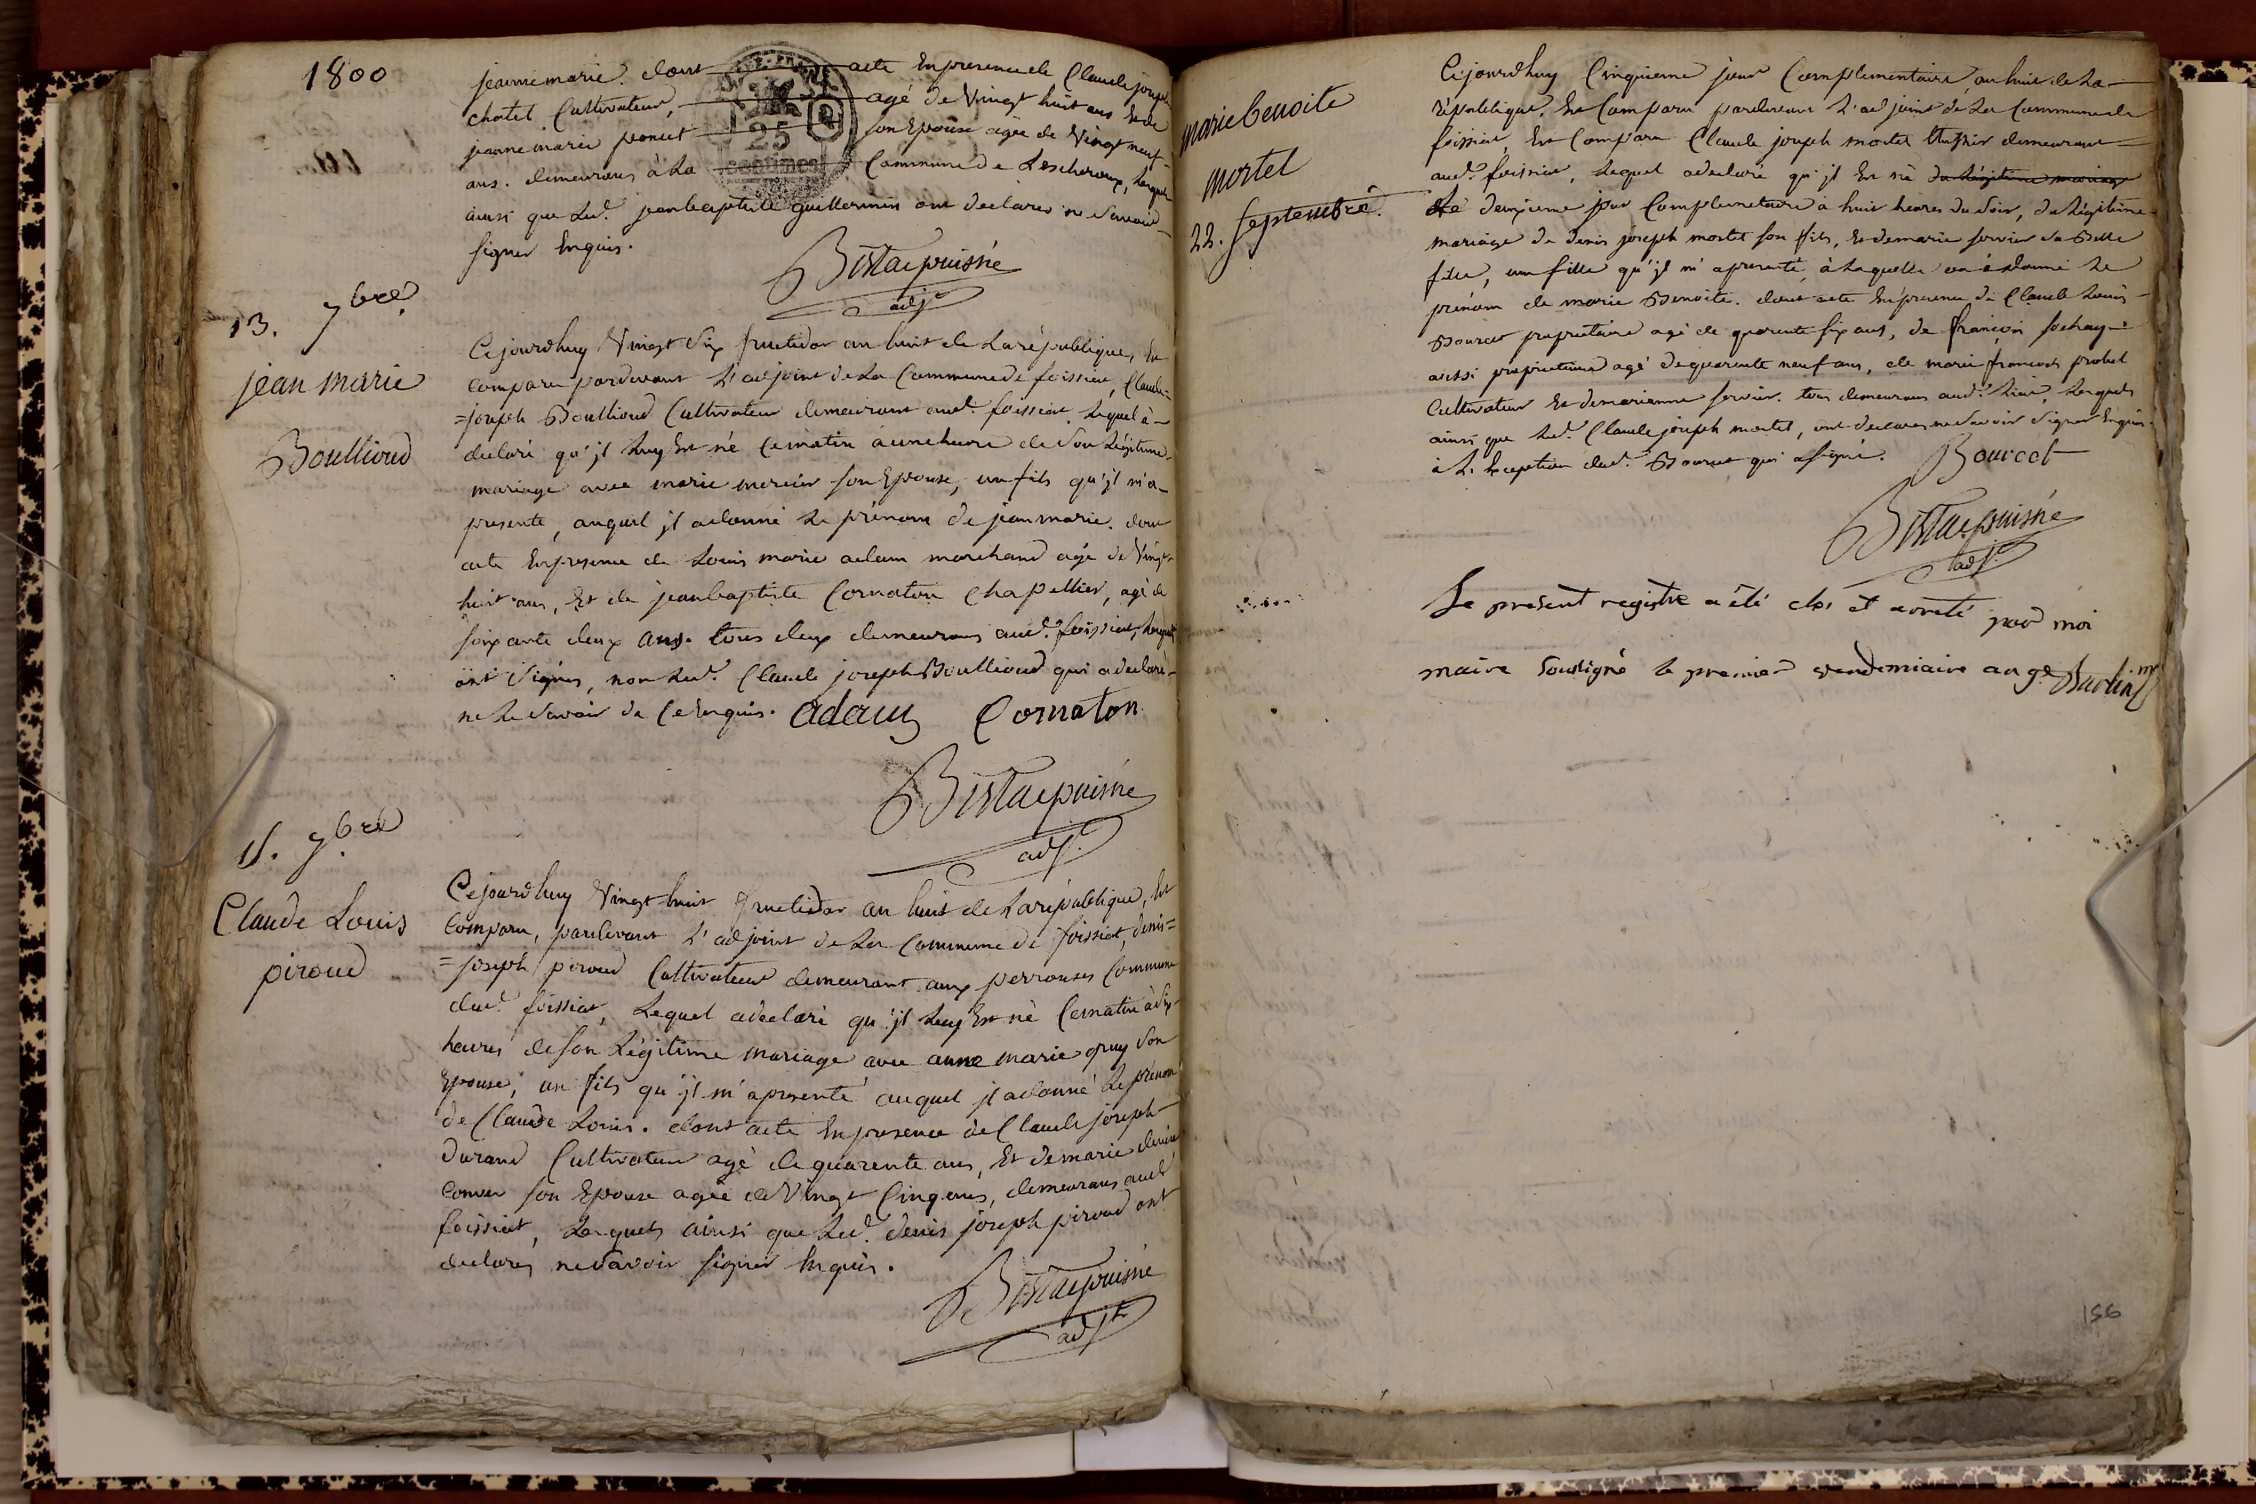 1800
jeanne marie. dont acte En presence de Claude joseph
chatel Cultivateur, agé de Vingt huit ans Et de
jeanne marie poncet son Epouse agée de Vingt neuf
ans. demeurans à La Commune de Lescheroux, Lesquels
ainsi que Led. jean baptiste guillermin ont declarés ne Savoir
signer Enquis.
Bistac puisné
adj.
13. 7bre
jean marie
Boullioud
Cejourdhuy Vingt Six fructidor an huit de La république, Est
comparu pardevant L'adjoint de La Commune de foissiat, Claude=
=joseph Boullioud Cultivateur demeurant aud. foissiat Lequel à
declaré qu'jl Luy Est né Ce matin à une heure de Son Légitime
mariage avec marie mercier son Epouse, un fils qu'jl m'a
presenté, auquel jl a donné Le prénom de jean marie. dont
acte En presence de Louis marie adam marchand agé de Vingt
huit ans, Et de jean baptiste Cornaton Chapellier, agé de
soixante deux ans. tous deux demeurans aud. foissiat, Lesquels
ont Signés, non Led. Claude joseph Boullioud qui a declaré
ne Le Savoir de Ce Enquis. adam Cornaton
Bistac puisné
adj.
15. 7bre
Claude Louis
piroud
Cejourdhuy Vingt huit fructidor an huit de La république, Est
Comparu, pardevant L'adjoint de La Commune de foissiat, denis=
=joseph piroud Cultivateur demeurant aux perrouses Commune
dud. foissiat, Lequel a declaré qu'jl Luy Est né Ce matin à Six
heures de son Légitime mariage avec anne marie gruy Son
Epouse, un fils qu'jl m'a presenté auquel jl a donné Le prénom
de Claude Louis. dont acte En presence de Claude joseph
Durand Cultivateur agé de quarente ans, Et de marie
son Epouse agée de Vingt Cinq ans, demeurans aud.
foissiat, Lesquels ainsi que Led. denis joseph piroud ont
declarés ne Savoir signer Enquis.
Bistac puisné
adjt
marie benoite
mortel
22. septembre.
Cejourdhuy Cinquieme jour Complementaire, an huit de La
république. Est Comparu pardevant L'adjoint de La Commune de
foissiat, Est Comparu Claude joseph mortel demeurant
aud. foissiat, Lequel a declaré qu'jl Est né du Légitime mariage
Le deuxieme jour Complementaire à huit heures du Soir, du Légitime
mariage de denis joseph mortel son fils, Et de marie servier Sa Belle
fille, une fille qu'jl m'a presenté, à Laquelle on a donné Le
prénom de marie Benoite. dont acte En presence de Claude Louis
Bourcet proprietaire agé de quarente six ans, de françois sochay
aussi proprietaire agé de quarente neuf ans, de marie francois probel
Cultivateur Et de marianne servier. tous demeurans aud. Lieu, Lesquels
ainsi que Led. Claude joseph mortel, ont declarés ne Savoir Signer Enquis
à L'Exception dud. Bourcet qui a signé. Bourcet
Bistac puisné
adj.
Le présent registre a été clos et arreté par moi
maire soussigné le premier vendemiaire an 9e
156